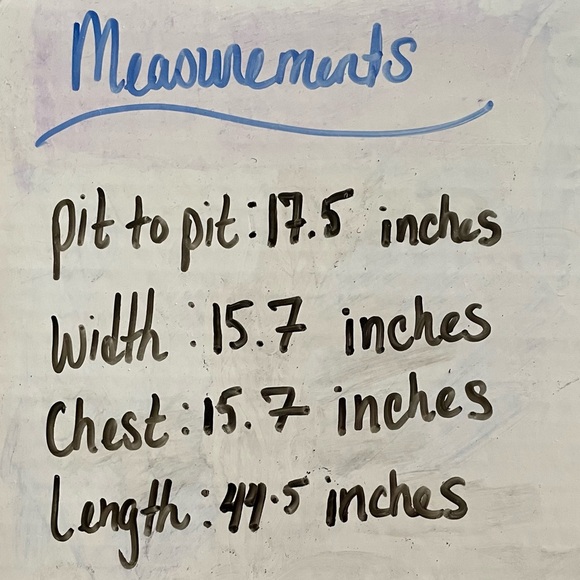 Measurements
Pit to pit: 17.5 inches
Width: 15.7 inches
Chest: 15.7 inches
Length: 44.5 inches